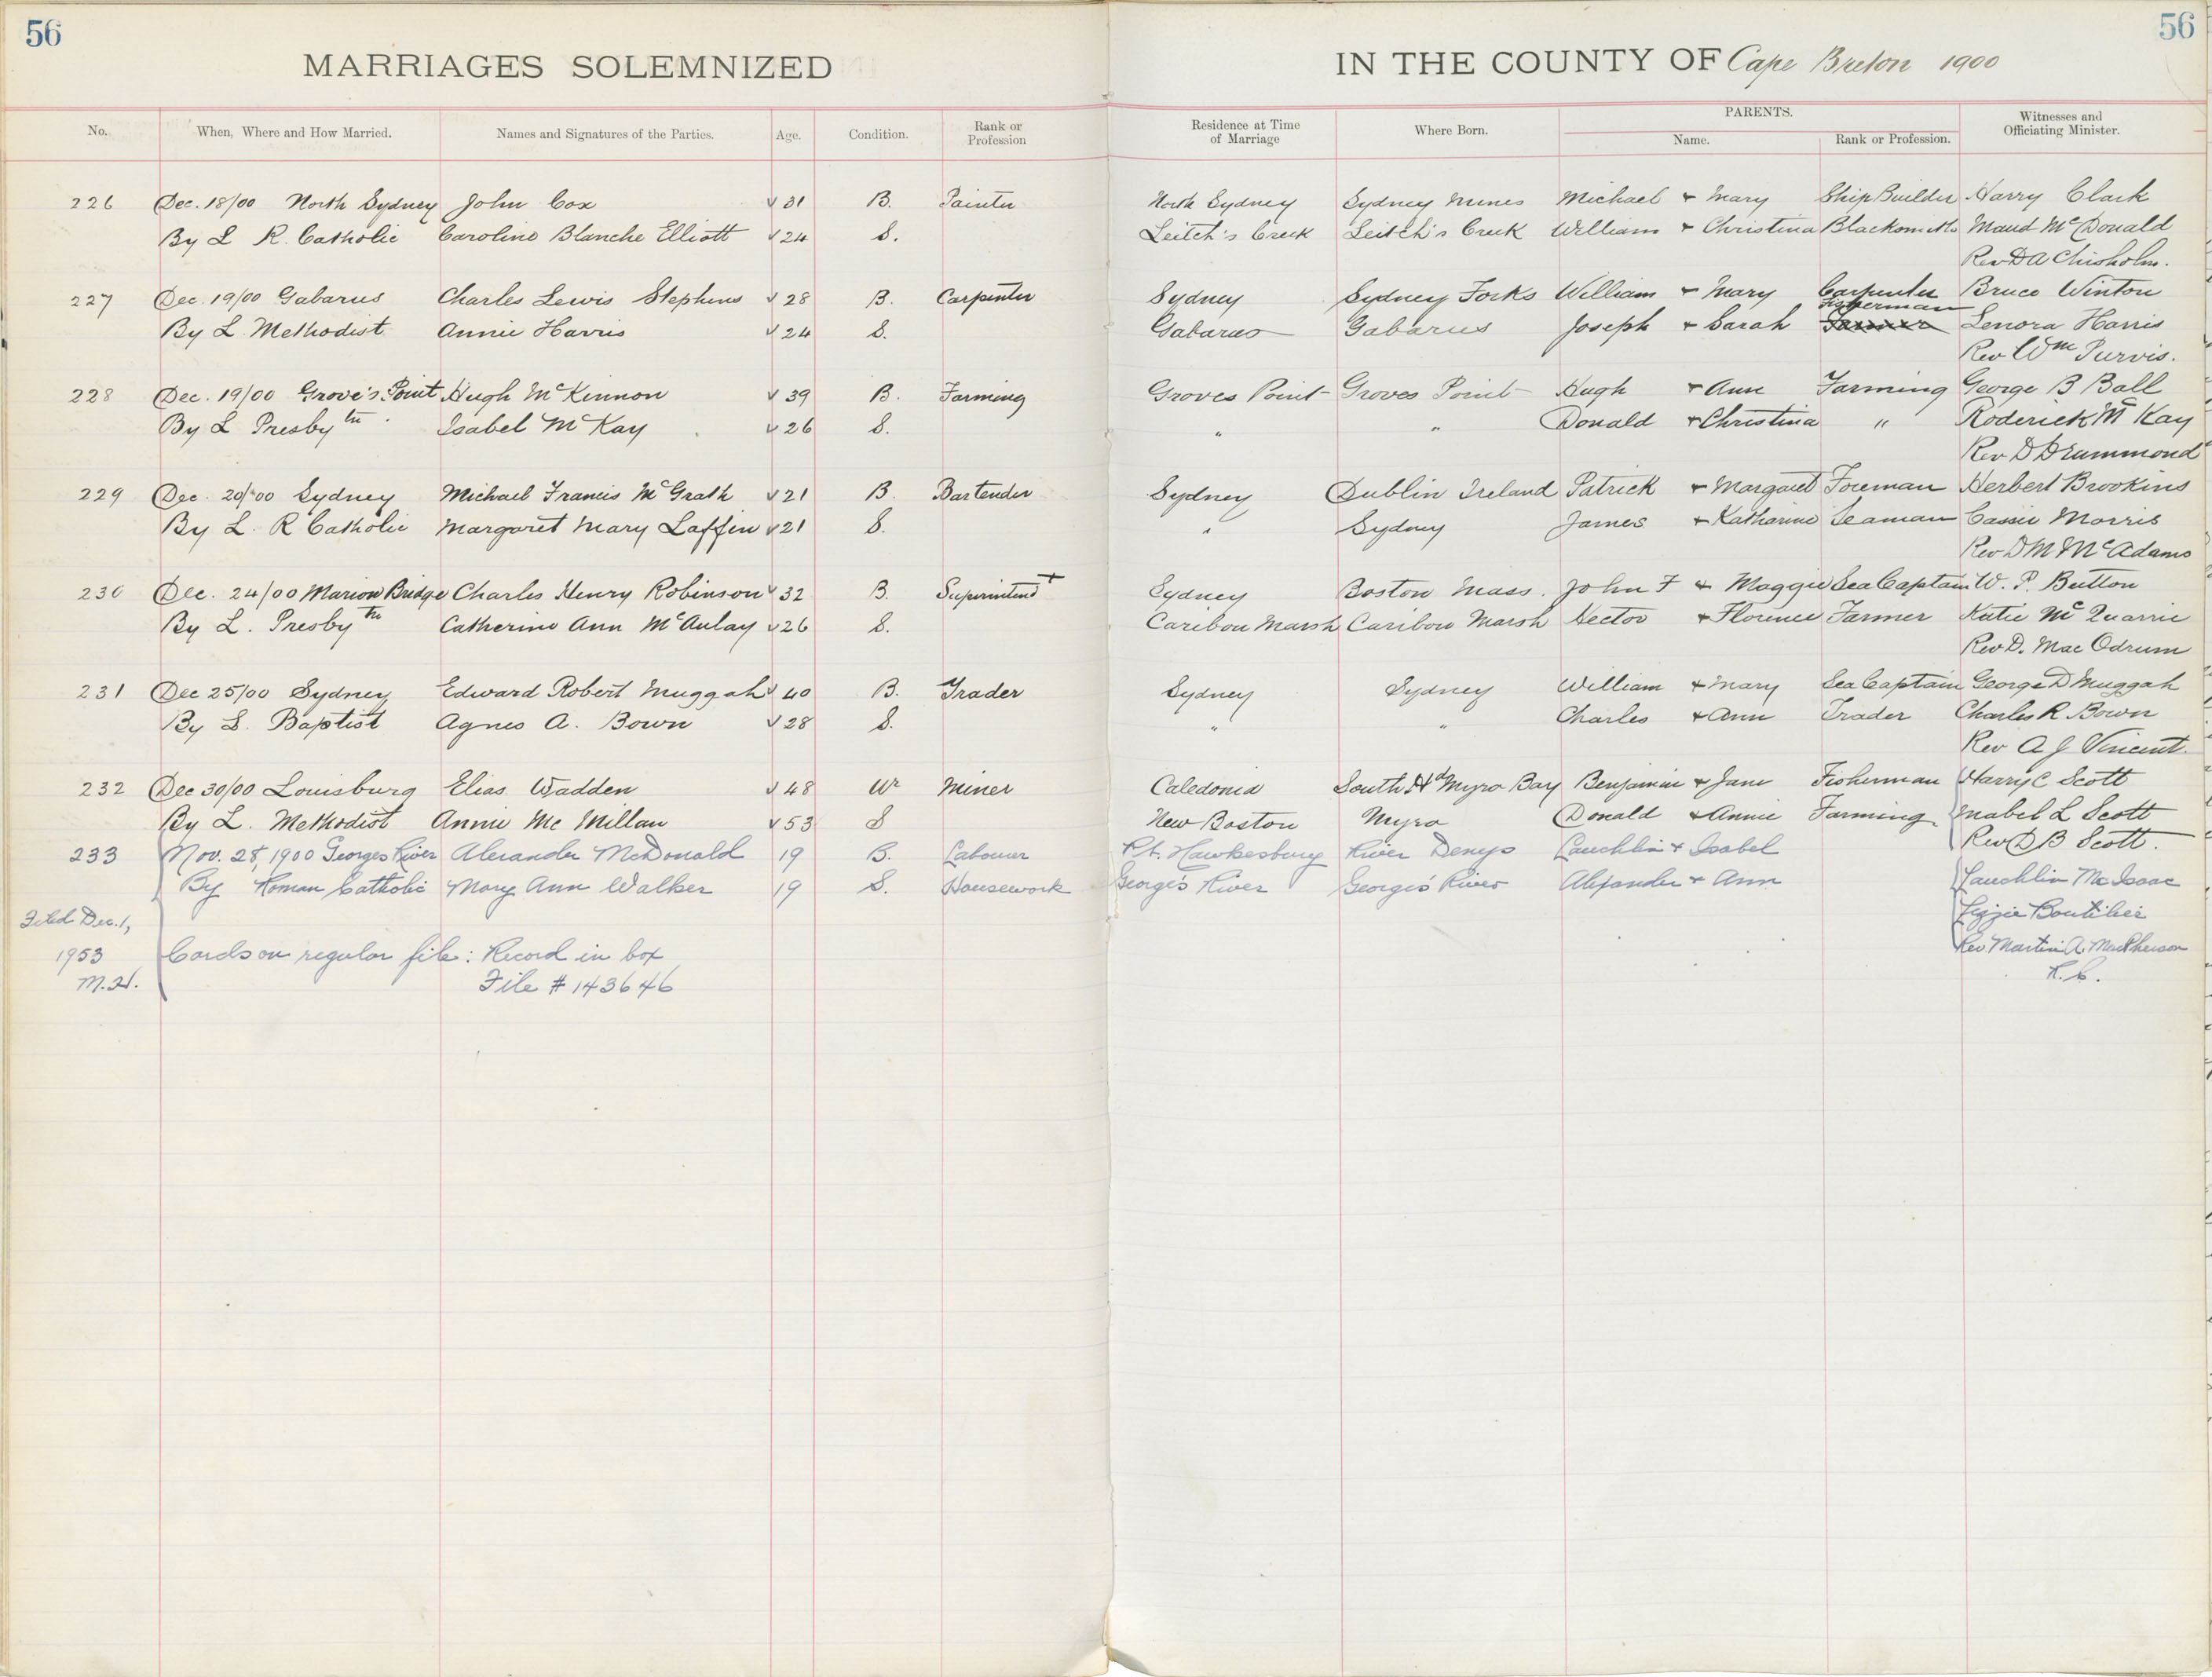 56
56
MARRIAGES SOLEMNIZED IN THE COUNTY OF Cape Breton 1900
No. When, Where and How Married. Names and Signatures of the Parties. Age. Condition. Rank or Profession Residence at Time of Marriage Where Born. PARENTS. Name. Rank or Profession. Witnesses and Officiating Minister.
226 Dec. 18/00 North Sydney John Cox 31 B. Painter North Sydney Sydney Mines Michael + Mary Ship Builder Harry Clark
By L R. Catholic Caroline Blanche Elliott 24 S. Leitch's Creek Leitch's Creek William + Christina Blacksmith Maud McDonald
Rev D A Chisholm.
227 Dec. 19/00 Gabarus Charles Lewis Stephens 28 B. Carpenter Sydney Sydney Forks William + Mary Carpenter Bruce Winton
By L Methodist Annie Harris 24 S. Gabarus Gabarus Joseph + Sarah Fisherman Farmer Lenora Harris
Rev Wm Purvis.
228 Dec. 19/00 Grove's Point Hugh McKinnon 39 B. Farming Groves Point Groves Point Hugh + Ann Farming George B Ball
By L Presbytn. Isabel McKay 26 S. " " Donald + Christina " Roderick McKay
Rev D Drummond
229 Dec. 20/00 Sydney Michael Francis McGrath 21 B. Bartender Sydney Dublin Ireland Patrick + Margaret Foreman Herbert Brookins
By L. R Catholic Margaret Mary Laffin 21 S. " Sydney James + Katharine Seaman Cassie Morris
Rev D M McAdams
230 Dec. 24/00 Marion Bridge Charles Henry Robinson 32 B. Superintendt Sydney Boston Mass. John F + Maggie Sea Captain W. P. Button
By L. Presbytn Catherine Ann McAulay 26 S. Caribou Marsh Caribou Marsh Hector + Florence Farmer Katie McQuarrie
Rev D. Mac Odrum
231 Dec 25/00 Sydney Edward Robert Muggah 40 B. Trader Sydney Sydney William + Mary Sea Captain George D Muggah
By L. Baptist Agnes A. Bown 28 S. " " Charles + Ann Trader Charles R Bown
Rev A J Vincent.
232 Dec 30/00 Louisburg Elias Wadden 48 Wr Miner Caledonia South Hd Myra Bay Benjamin + Jane Fisherman Harry C Scott
By L. Methodist Annie Mc Millan 53 S New Boston Myra Donald + Annie Farming Mabel L Scott
Rev D B Scott.
233 Nov. 28, 1900 Georges River Alexander McDonald 19 B. Labourer Pt. Hawkesbury River Denys Lauchlin + Isabel
By Roman Catholic Mary Ann Walker 19 S. Housework George's River George's River Alexander + Ann Lauchlin McIsaac
Filed Dec. 1, Lizzie Boutilier
1953 Cards on regular file: Record in box Rev. Martin A. MacPherson
M.H. File # 143646 R.C.